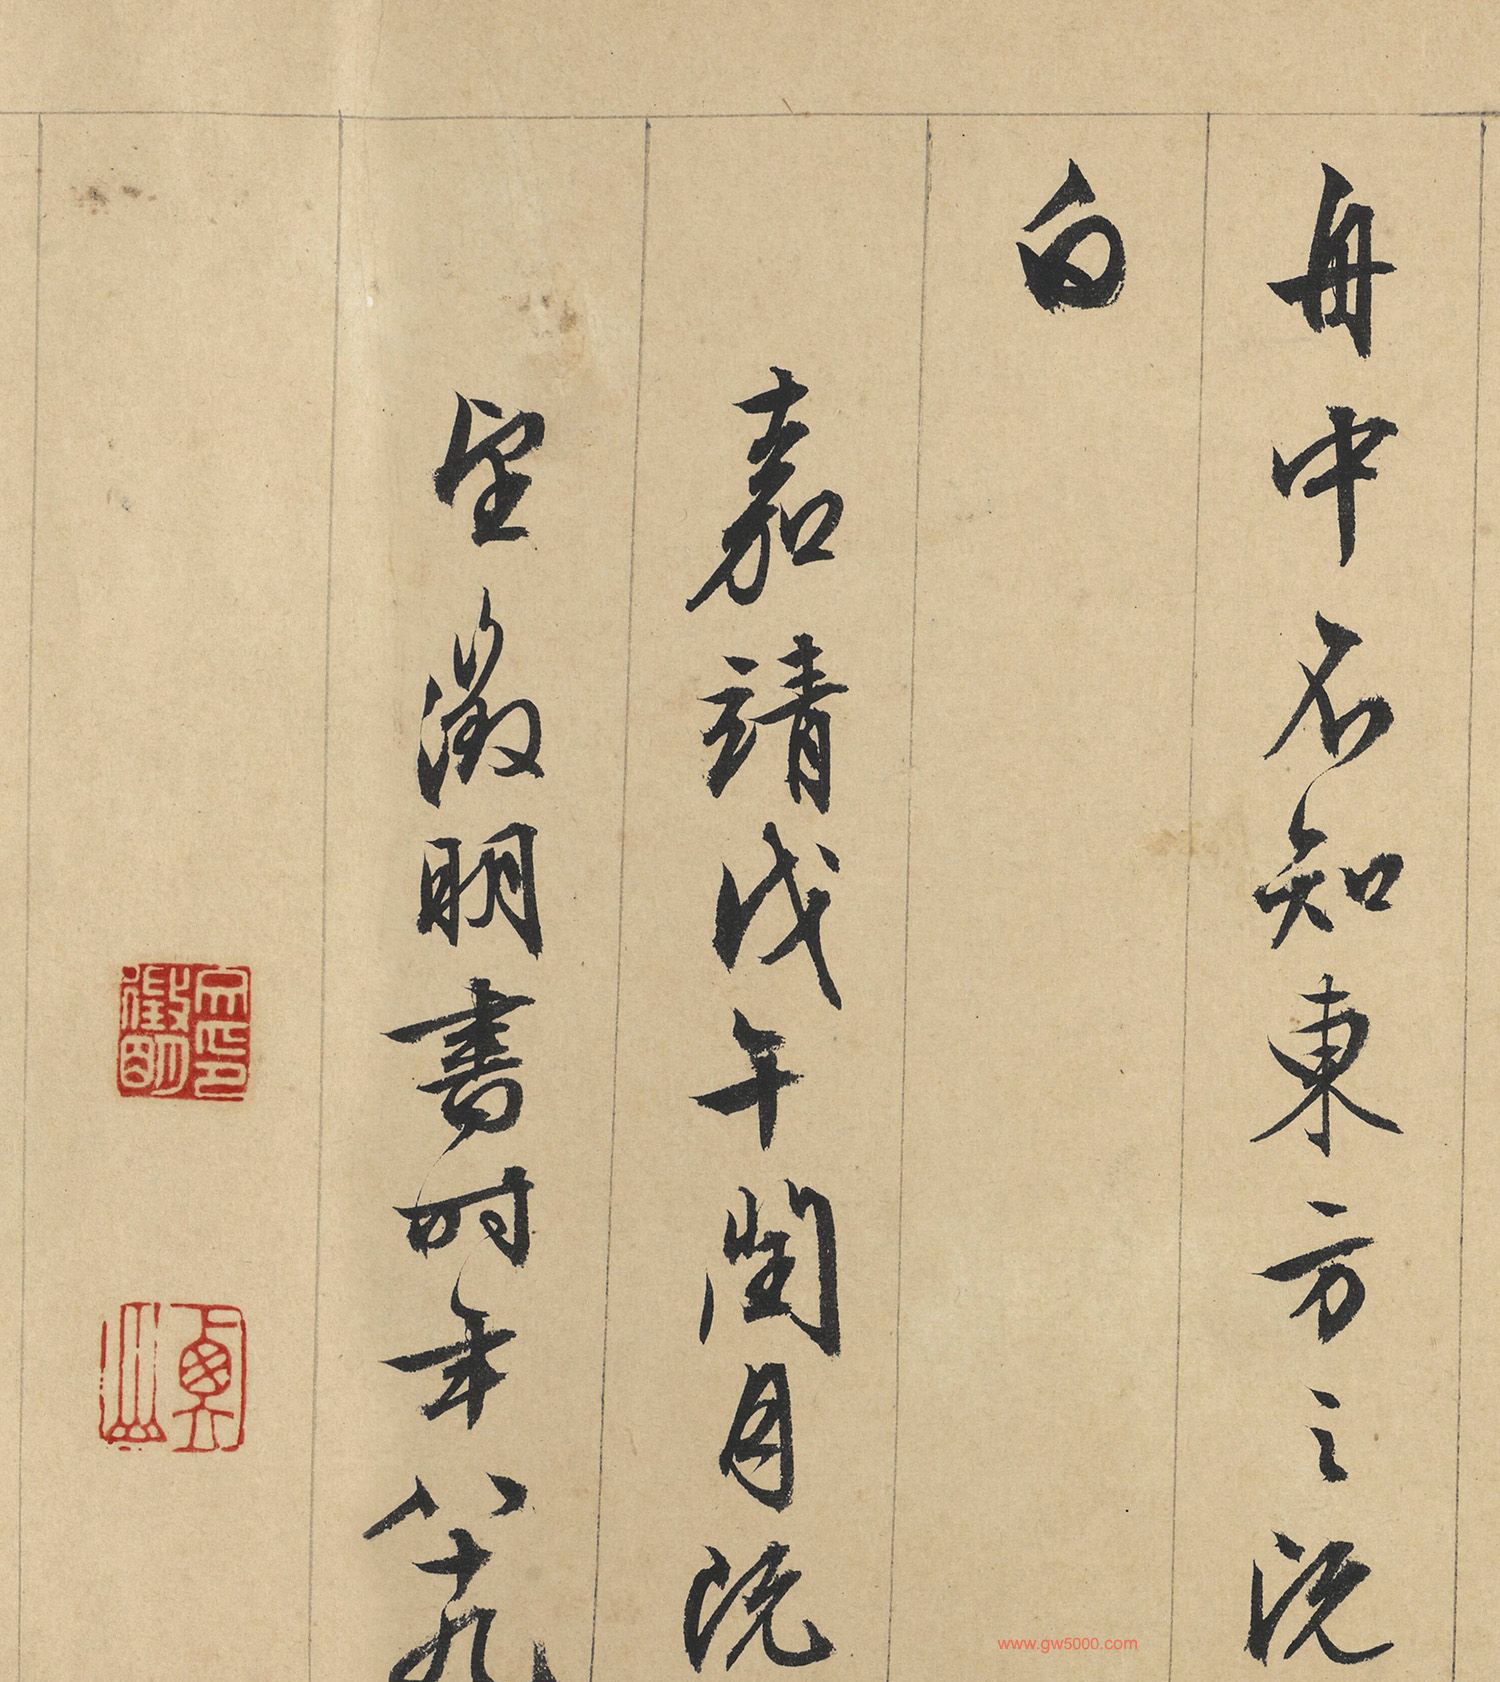 舟中不知東方之既
白
嘉靖戊午閏月既
望徵明書時年八十九
文徵明印
衡山
www.gw5000.com